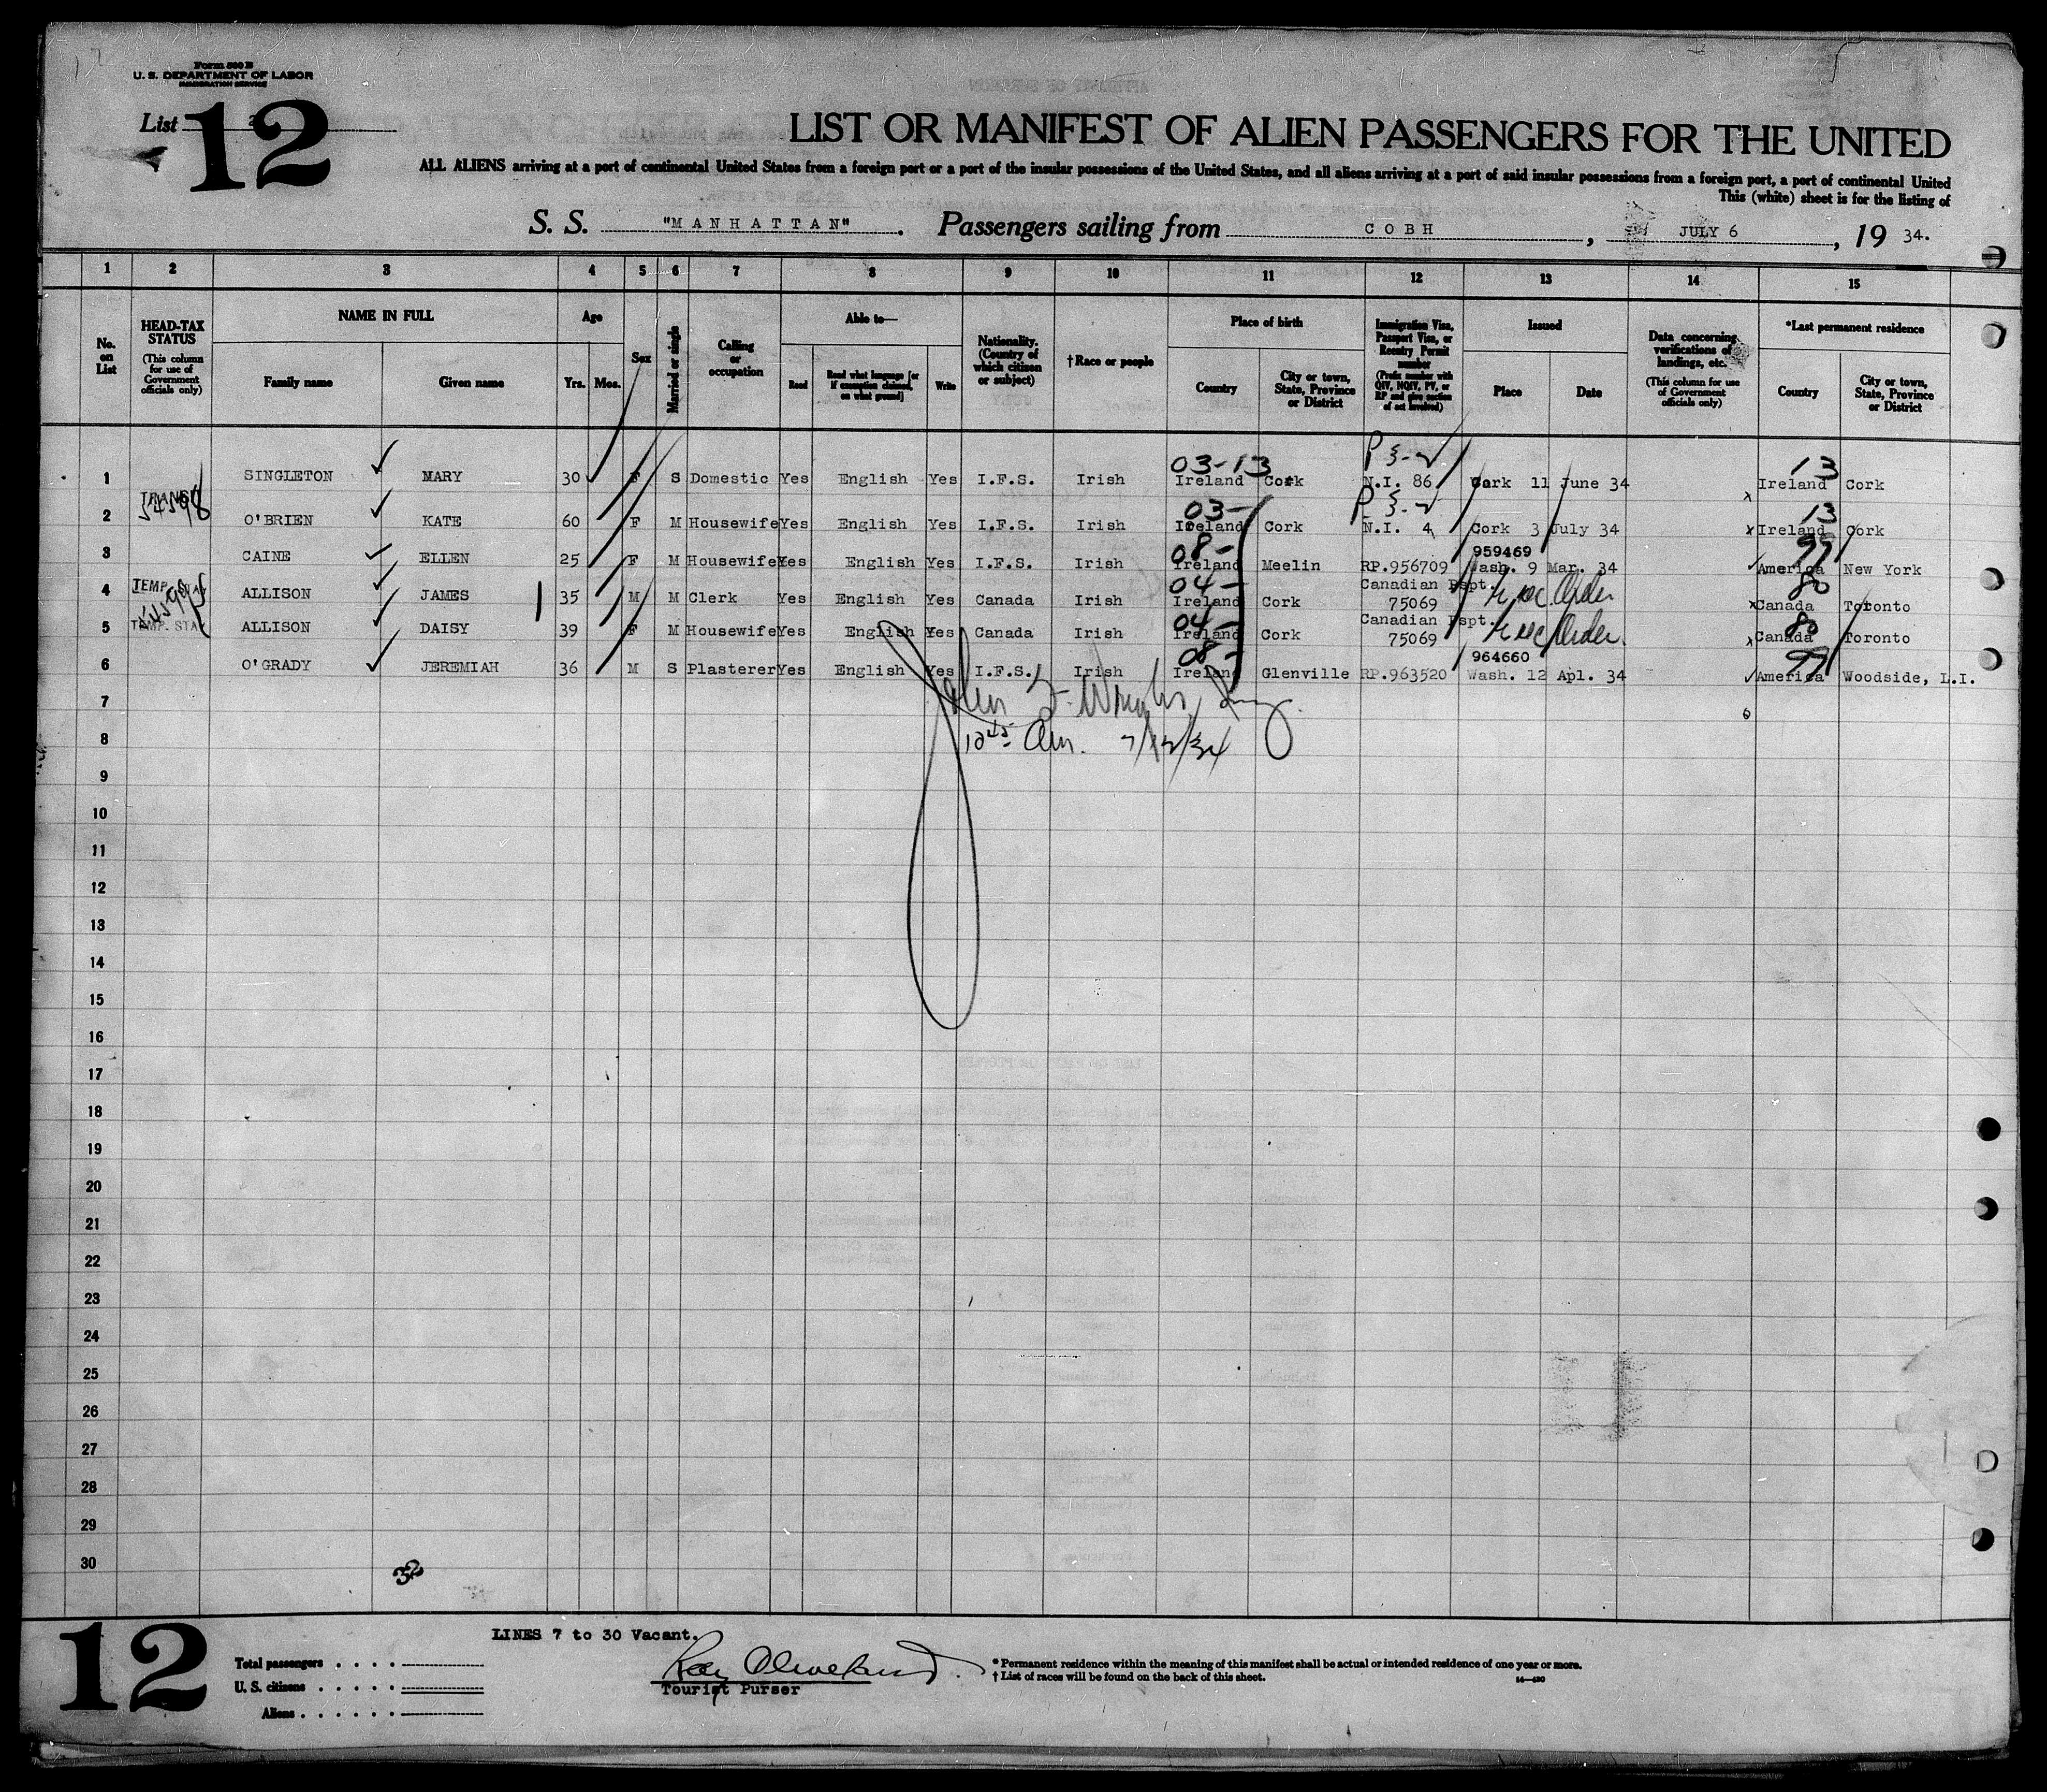 Form 500 B
U. S. DEPARTMENT OF LABOR
IMMIGRATION SERVICE
List 12
LIST OR MANIFEST OF ALIEN PASSENGERS FOR THE UNITED
ALL ALIENS arriving at a port of continental United States from a foreign port or a port of the insular possessions of the United States, and all aliens arriving at a port of said insular possessions from a foreign port, a port of continental United
This (white) sheet is for the listing of
S. S. "MANHATTAN". Passengers sailing from COBH, JULY 6, 19 34.
1 2 3 4 5 6 7 8 9 10 11 12 13 14 15
No. on List
HEAD-TAX STATUS
(This column for use of Government officials only)
NAME IN FULL
Family name Given name
Age
Yrs. Mos.
Sex
Married or single
Calling or occupation
Able to—
Read Read what language [or if exemption claimed, on what ground] Write
Nationality. (Country of which citizen or subject)
†Race or people
Place of birth
Country City or town, State, Province or District
Immigration Visa, Passport Visa, or Reentry Permit number
(Prefix number with QIV, NQIV, PV, or RP and give section of act involved)
Issued
Place Date
Data concerning verifications of landings, etc.
(This column for use of Government officials only)
*Last permanent residence
Country City or town, State, Province or District
03-13 P 3-2 13
1 SINGLETON MARY 30 F S Domestic Yes English Yes I.F.S. Irish Ireland Cork N.I. 86 Cark 11 June 34 Ireland Cork
TRANSIT
03- P 3-2 13
2 O'BRIEN KATE 60 F M Housewife Yes English Yes I.F.S. Irish Ireland Cork N.I. 4 Cork 3 July 34 x Ireland Cork
08- 959469 99
3 CAINE ELLEN 25 F M Housewife Yes English Yes I.F.S. Irish Ireland Meelin RP.956709 Wash. 9 Mar. 34 America New York
04- Canadian Dspt. 80
4 TEMP. STAY ALLISON JAMES 35 M M Clerk Yes English Yes Canada Irish Ireland Cork 75069 Exec. Order x Canada Toronto
04- Canadian Dspt. 80
5 TEMP. STAY ALLISON DAISY 39 F M Housewife Yes English Yes Canada Irish Ireland Cork 75069 Exec Order. x Canada Toronto
08- 964660 99
6 O'GRADY JEREMIAH 36 M S Plasterer Yes English Yes I.F.S. Irish Ireland Glenville RP.963520 Wash. 12 Apl. 34 America Woodside, L.I.
7
8 10 45 Am. 7/12/34
9
10
11
12
13
14
15
16
17
18
19
20
21
22
23
24
25
26
27
28
29
30
12
LINES 7 to 30 Vacant.
Total passengers
U. S. citizens
Aliens
Tourist Purser
* Permanent residence within the meaning of this manifest shall be actual or intended residence of one year or more.
† List of races will be found on the back of this sheet.
14—430